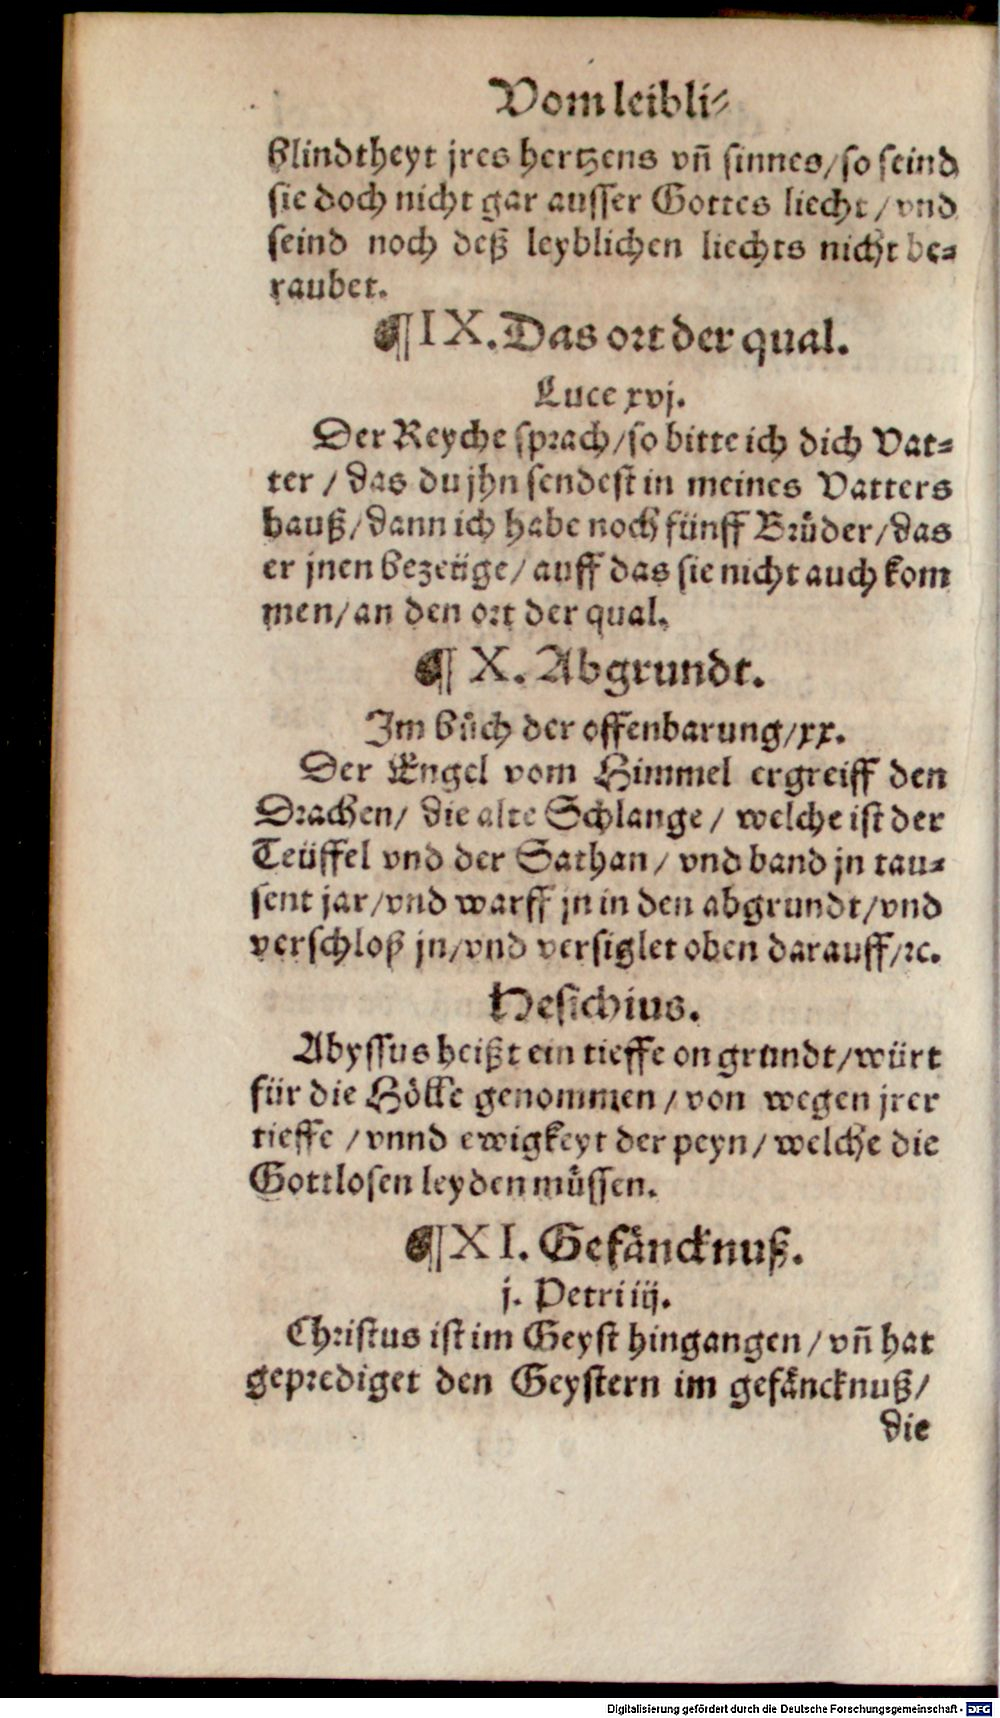 Vom leibli⸗
blindtheyt jres hertzens vñ sinnes/so seind
sie doch nicht gar ausser Gottes liecht/vnd
seind noch deß leyblichen liechts nicht be⸗
raubet.
¶ IX. Das ort der qual.
Luce xvj.
Der Reyche sprach/so bitte ich dich Vat⸗
ter/das du jhn sendest in meines Vatters
hauß/dann ich habe noch fünff Bruͤder/das
er jnen bezeüge/auff das sie nicht auch kom
men/an den ort der qual.
¶ X. Abgrundt.
Im buͦch der offenbarung/xx.
Der Engel vom Himmel ergreiff den
Drachen/die alte Schlange/welche ist der
Teüffel vnd der Sathan/vnd band jn tau⸗
sent jar/vnd warff jn in den abgrundt/vnd
verschloß jn/vnd versiglet oben darauff/ꝛc.
Hesichius.
Abyssus heißt ein tieffe on grundt/würt
für die Hoͤlle genommen/von wegen jrer
tieffe/vnnd ewigkeyt der peyn/welche die
Gottlosen leyden muͤssen.
¶ XI. Gefaͤncknuß.
j. Petri iij.
Christus ist im Geyst hingangen/vñ hat
geprediget den Geystern im gefaͤncknuß/
die
Digitalisierung gefördert durch die Deutsche Forschungsgemeinschaft - DFG